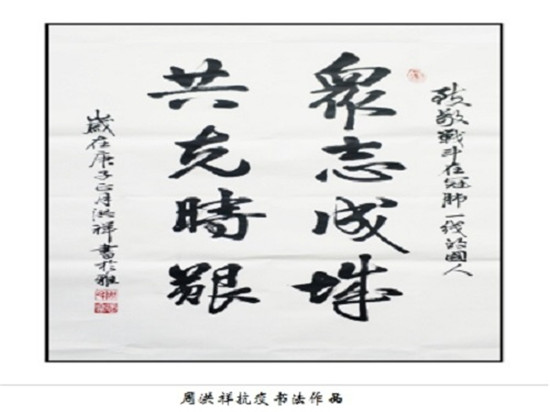 致敬戰斗在冠肺一线的國人
眾志成城
共克時艱
歲在庚子正月洪祥書於雅
周洪祥抗疫书法作品